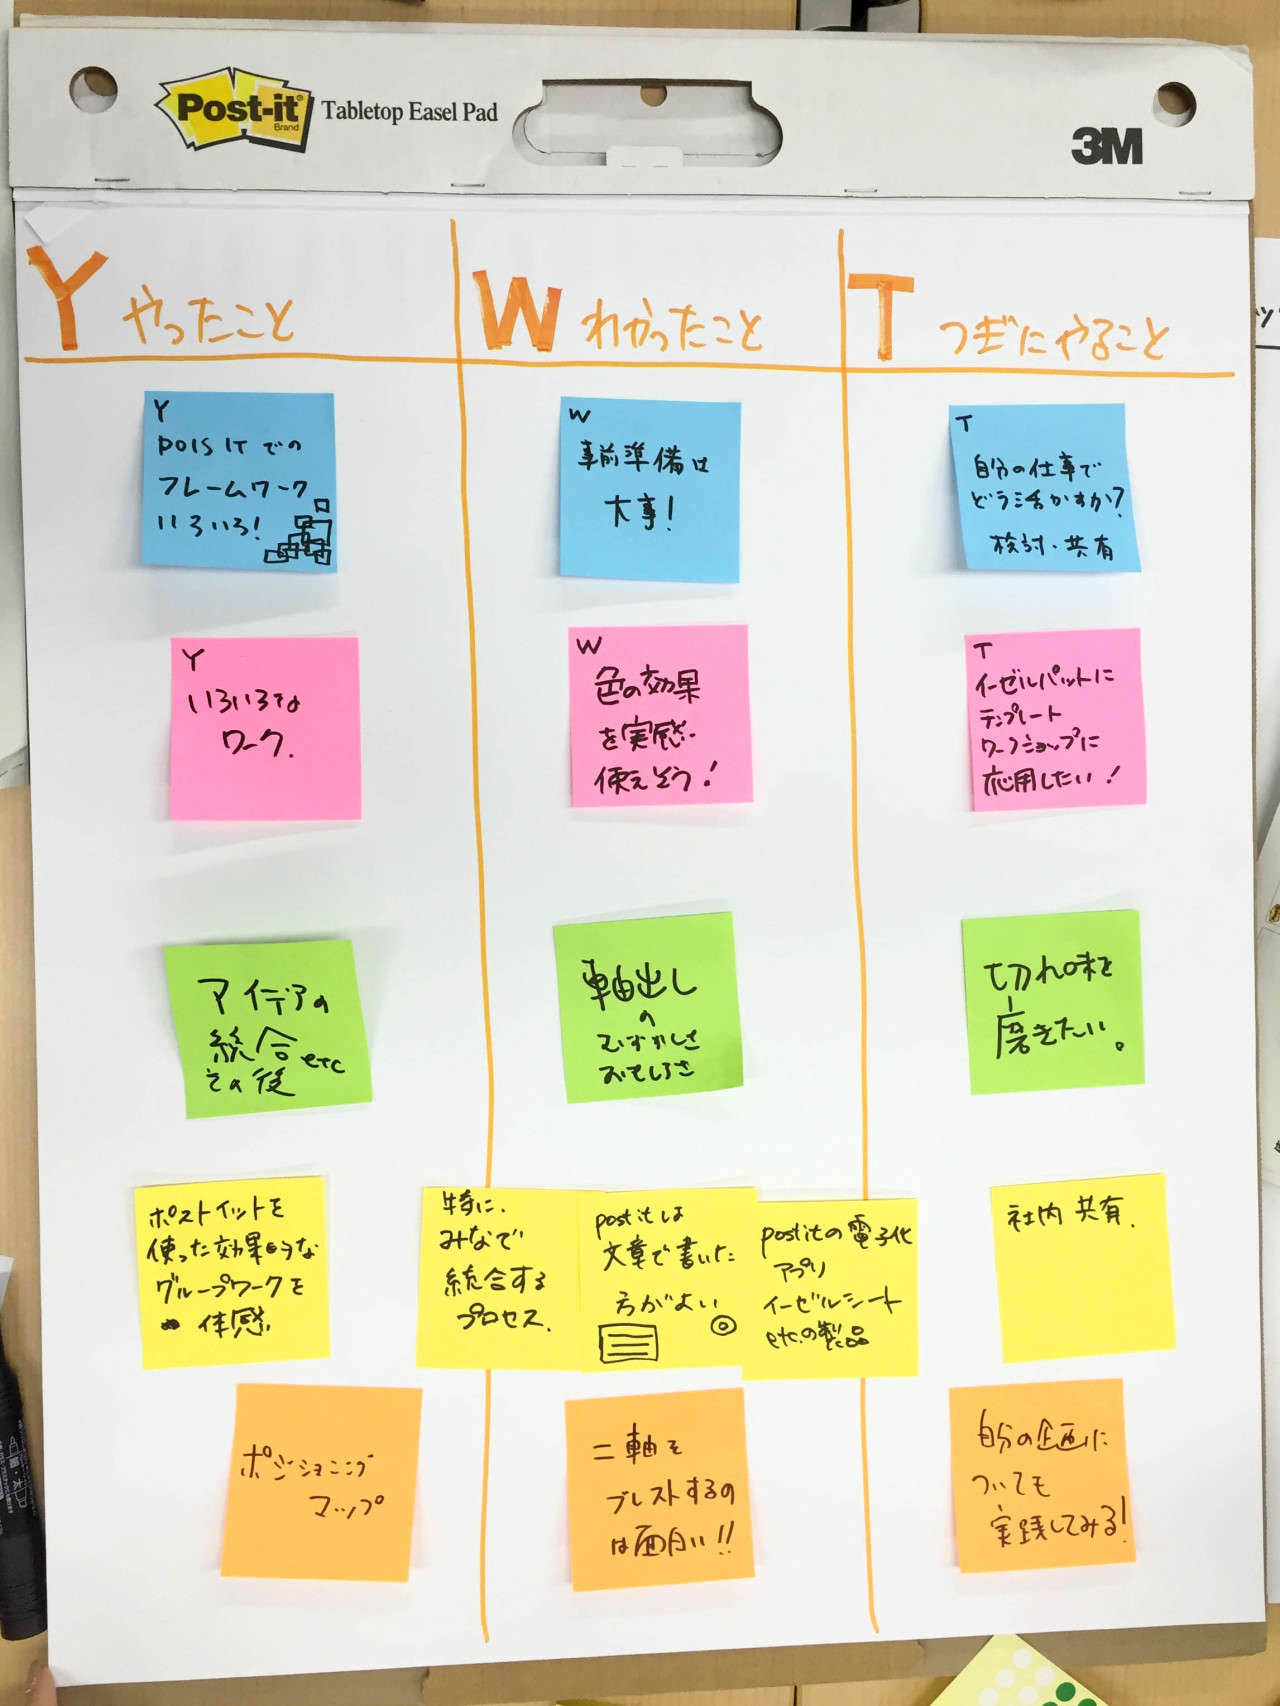 Post-it
Brand
Tabletop Easel Pad
3M
Y やったこと
W わかったこと
T つぎにやること
Y
POIS ITでの
フレームワーク
いろいろ!
W
事前準備は
大事!
T
自分の仕事で
どう活かすか?
検討・共有
Y
いろいろな
ワーク.
W
色の効果
を実感.
使えそう!
T
イーゼルパットに
テンプレート
ワークショップに
応用したい!
アイデアの
統合 etc
その後
軸出し
の
むずかしさ
おもしろさ
切れ味を
磨きたい。
ポストイットを
使った効果的な
グループワークを
体感
特に、
みなで
統合する
プロセス.
postitは
文章で書いた
方がよい
postitの電子化
アプリ
イーゼルシート
etc.の製品
社内共有.
ポジショニング
マップ
二軸を
ブレストするの
は面白い!!
自分の企画に
ついても
実践してみる!